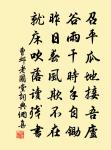 召平瓜地接吾廬
谷雨干時手自鋤
昨日春風欺不在
就床吹落讀殘書
曹鄴老圃堂詞典網